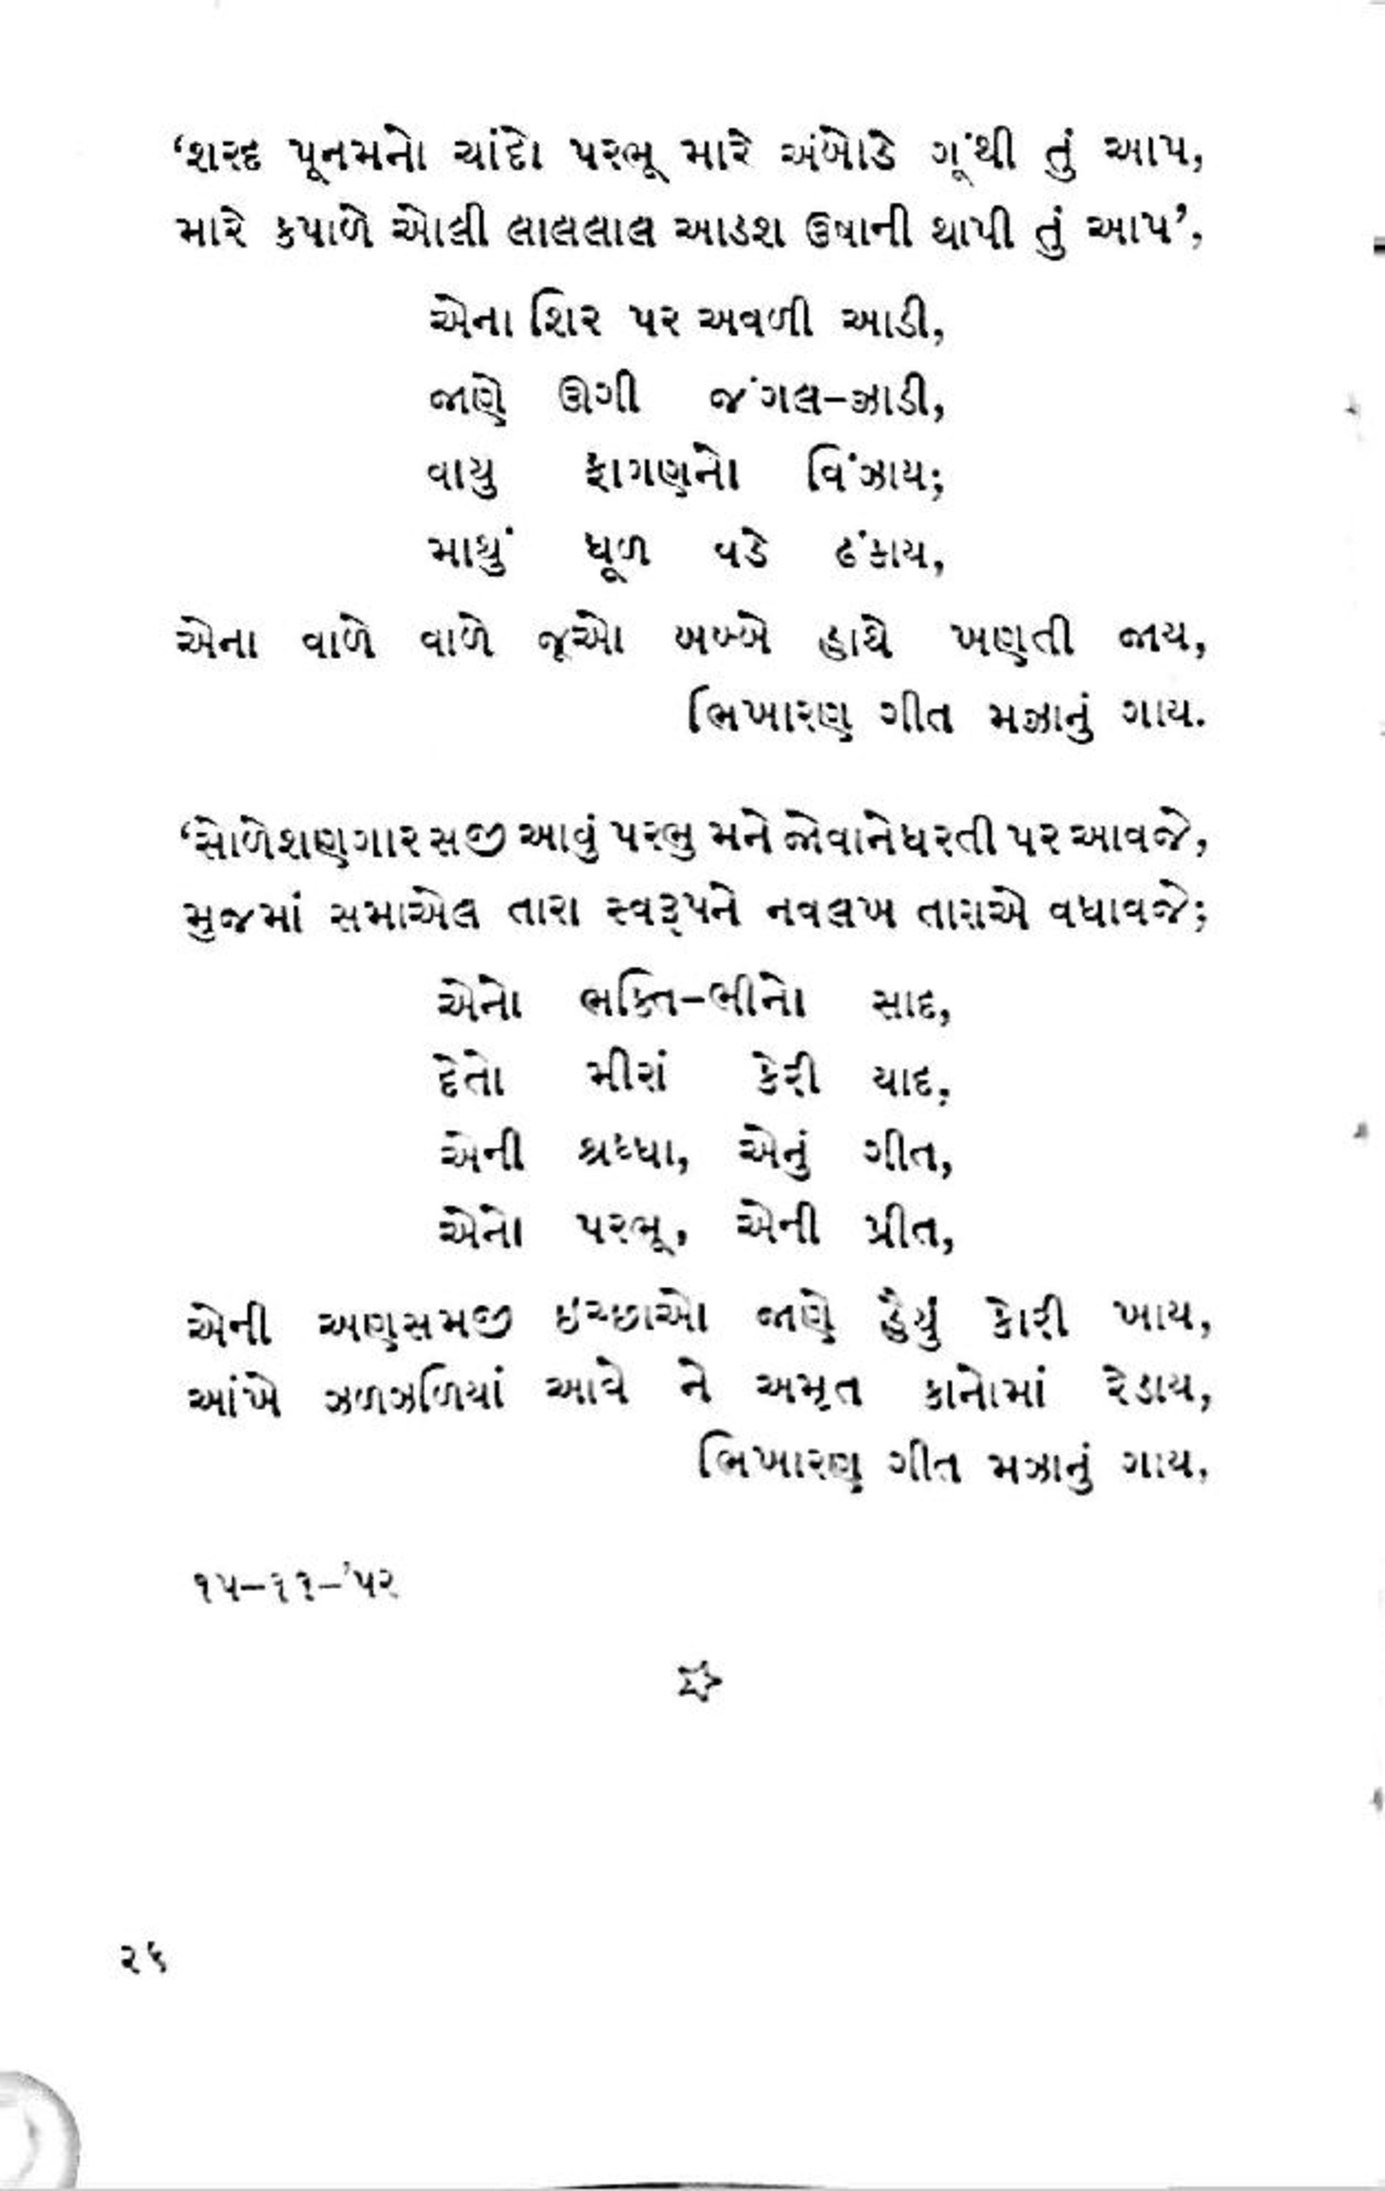 ‘શરદ પૂનમનો ચાંદો પરભૂ મારે અંબોડે ગૂંથી તું આપ,
મારે કપાળે ઓલી લાલલાલ આડશ ઉષાની થાપી તું આપ’,
એના શિર પર અવળી આડી,
જાણે ઊગી જંગલ-ઝાડી,
વાયુ ફાગણનો વિંઝાય;
માથું ધૂળ વડે ઢંકાય,
એના વાળે વાળે જૂઓ બબ્બે હાથે ખણતી જાય,
ભિખારણ ગીત મઝાનું ગાય.
‘સોળે શણગાર સજી આવું પરભુ મને જોવાને ધરતી પર આવજે,
મુજમાં સમાએલ તારા સ્વરૂપને નવલખ તારાએ વધાવજે;
એનો ભક્તિ-ભીનો સાદ,
દેતો મીરાં કેરી યાદ,
એની શ્રધ્ધા, એનું ગીત,
એનો પરભૂ, એની પ્રીત,
એની અણસમજી ઇચ્છાઓ જાણે હૈયું કોરી ખાય,
આંખે ઝળઝળિયાં આવે ને અમૃત કાનોમાં રેડાય,
ભિખારણ ગીત મઝાનું ગાય.
૧૫-૧૧-’૫૨
૨૬